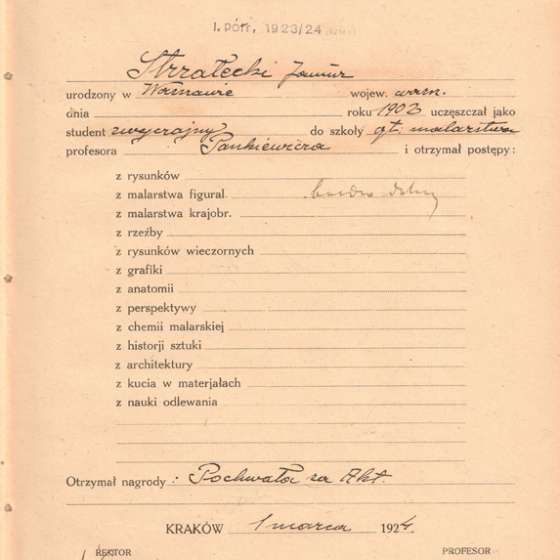 I. półr. 1923/24
Strzałecki Janusz
urodzony w Warszawie wojew. warsz.
dnia roku 1902 uczęszczał jako
student zwyczajny do szkoły gł. malarstwa
profesora Pankiewicza i otrzymał postępy:
z rysunków
z malarstwa figural. bardzo dobry
z malarstwa krajobr.
z rzeźby
z rysunków wieczornych
z grafiki
z anatomii
z perspektywy
z chemii malarskiej
z historji sztuki
z architektury
z kucia w materjałach
z nauki odlewania
Otrzymał nagrody: Pochwała za Akt.
KRAKÓW 1 marca 1924.
REKTOR PROFESOR